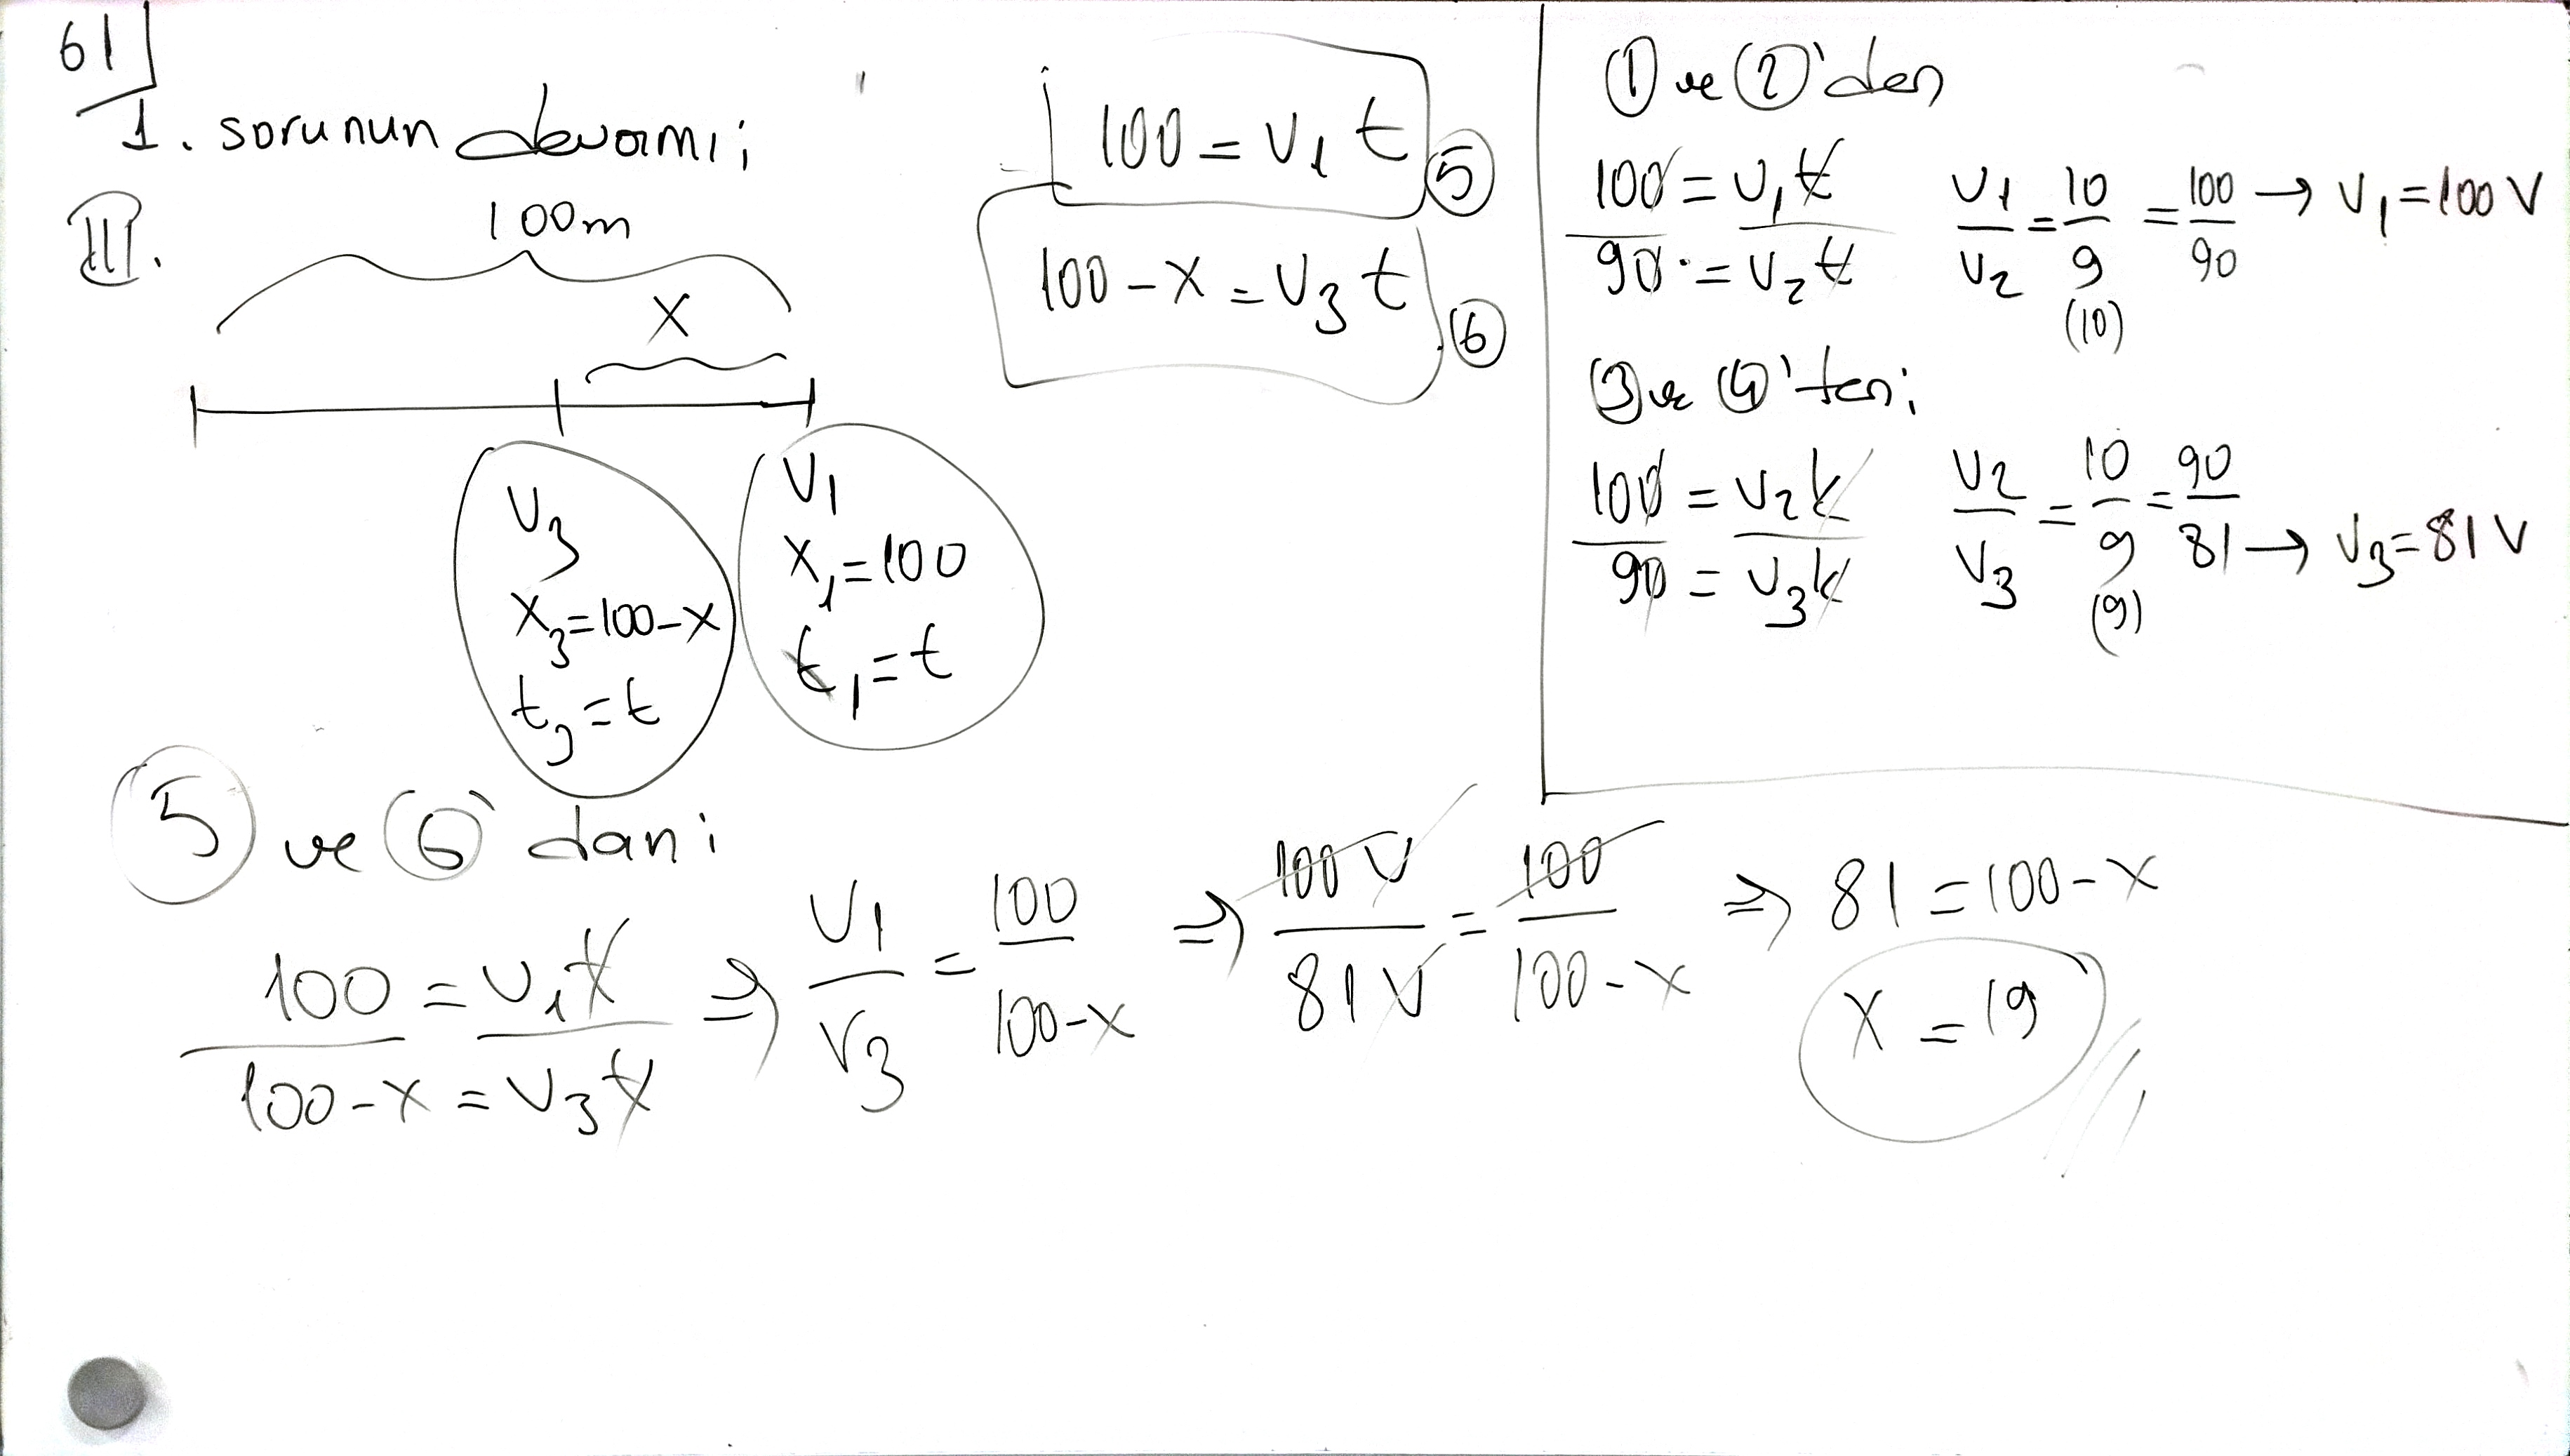 61
1. sorunun devamı;
III.
100m
x
V₃
x₃=100-x
t₃=t
V₁
x₁=100
t₁=t
100 = V₁ t ⑤
100 - x = V₃ t ⑥
① ve ②'den
100 = V₁t
90 = V₂t
V₁/V₂ = 10/9 = 100/90 → V₁=100V
(10)
③ ve ④'ten;
100 = V₂k
90 = V₃k
V₂/V₃ = 10/9 = 90/81 → V₃=81V
(9)
⑤ ve ⑥'dan;
100 = V₁t
100-x = V₃t
⇒ V₁/V₃ = 100/100-x ⇒ 100V/81V = 100/100-x ⇒ 81=100-x
x = 19